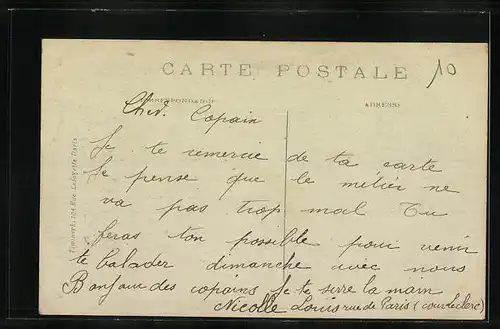 CARTE POSTALE
10
CORRESPONDANCE
ADRESSE
Cher Copain
Je te remercie de ta carte
Je pense que le métier ne
va pas trop mal Tu
feras ton possible pour venir
te balader dimanche avec nous
Bonjour des copains Je te serre la main
Nicolle Louis rue de Paris (cour Leclerc)
104 Rue Lafayette Paris